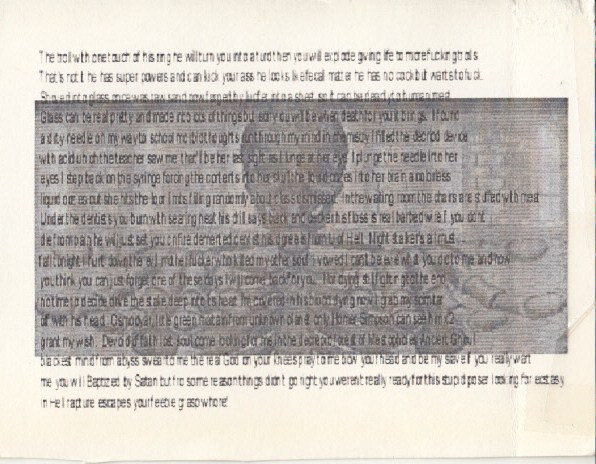 The troll with one touch of his ring he will turn you into a turd then you will explode giving life to more fucking trolls
That's not it he has super powers and can kick your ass he looks like fecal matter he has no cock but wants to fuck
into glass once was raw sand now forged by lucifer into a sheet so it can be
Glass can be real pretty and made into lots of things but sorry you will be when death for you it brings. I found
a dirty needle on my way to school morbid thoughts run through my mind in chemistry I filled the device
with acid uh oh the teacher saw me that'll be her last sight as I lunge at her eyes I plunge the needle into her
eyes I step back on the syringe forcing the contents into her skull the liquid oozes into her brain a
liquid oozes out she hits the floor limbs filling randomly about class dismissed In the waiting room the chairs are stuffed with meat
Under the dentist you burn with searing heat his drill says black and decker his floss is real barbed wire if you don't
die from pain he will just set you on fire demented dentist his degree is from U of Hell Night stalkers
fall tonight I hurt down the evil motherfucker who killed my other soul I vowed I can't believe what you do to me and how
you think you can just forget one of these days I will come back for you. dying still fighting to the end
not time to decide drive the stake deep into his heart I'm covered in his blood dying now I grab my scimitar
off with his head. little green from unknown planet only Homer Simpson can see him
grant my wish. Devoid of faith lost soul come looking for me in the forest of Ancient
blackest mind from abyss swear to me the real God on your knees pray to me bow your head and be my slave if you really want
me you will Baptized by Satan but for some reason things didn't go right you weren't really ready for this stupid poser looking for ecstasy
in Hell rapture escapes your feeble grasp whore!